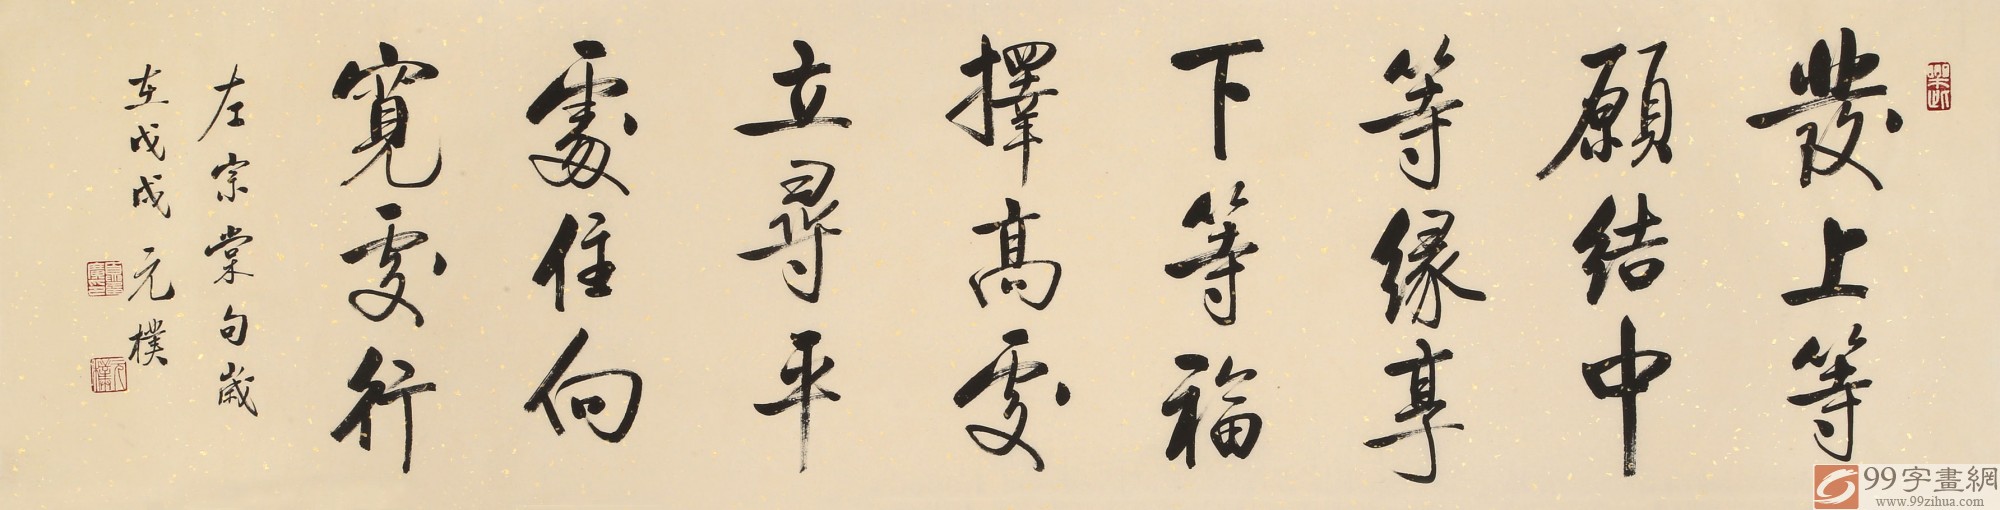 發上等
願結中
等緣享
下等福
擇高處
立尋平
處住向
寬處行
左宗棠句歲
在戊戌元樸
99字畫網
www.99zihua.com